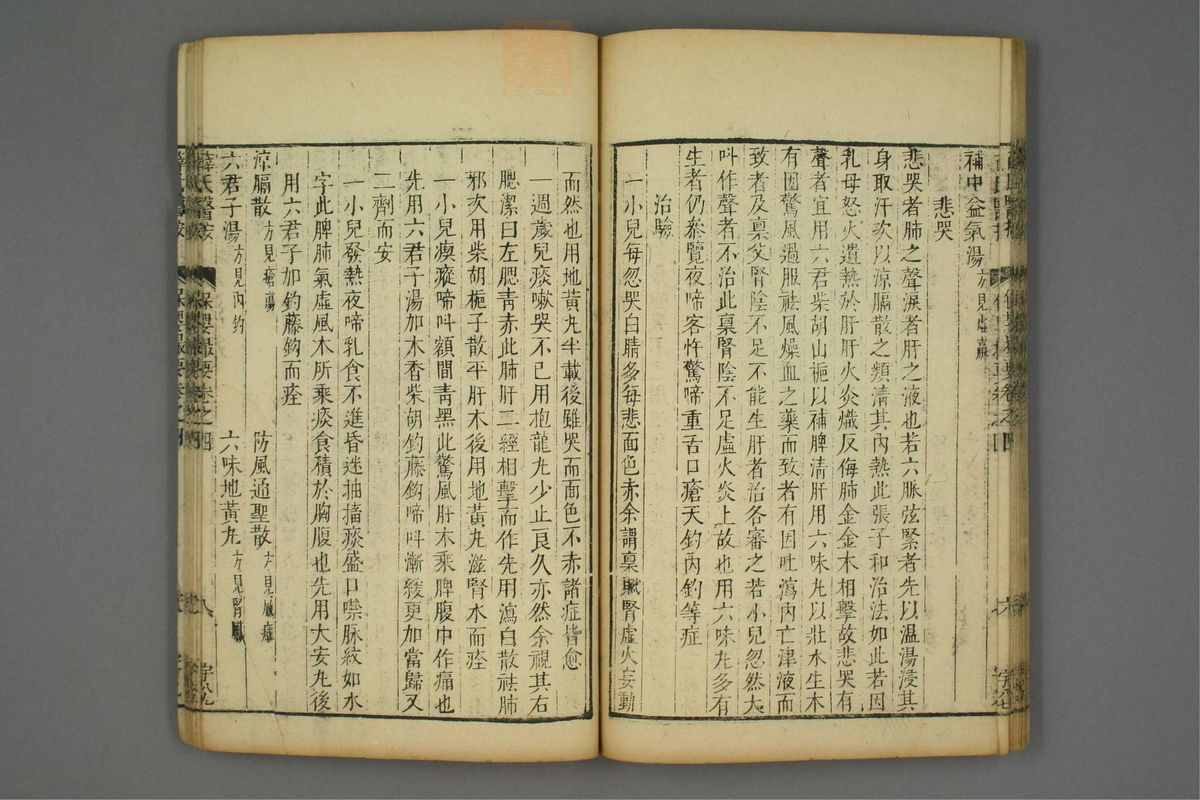 補中益氣湯方見虛羸
悲哭
悲哭者肺之聲淚者肝之液也若六脉弦緊者先以溫湯浸其
身取汗次以涼膈散之類清其內熱此張子和治法如此若因
乳母怒火遺熱於肝肝火炎熾反侮肺金金木相擊故悲哭有
聲者宜用六君柴胡山梔以補脾清肝用六味丸以壯水生木
有因驚風過服祛風燥血之藥而致者有因吐瀉內亡津液而
致者及稟父腎陰不足不能生肝者治各審之若小兒忽然大
呌作聲者不治此稟腎陰不足虛火炎上故也用六味丸多有
生者仍叅覽夜啼客忤驚啼重舌口瘡天釣內釣等症
治驗
一小兒每忽哭白睛多每悲面色赤余謂稟賦腎虛火妄動
而然也用地黃丸半載後雖哭而面色不赤諸症皆愈
一週歲兒痰嗽哭不已用抱龍丸少止良久亦然余視其右
腮潔白左腮靑赤此肺肝二經相擊而作先用瀉白散祛肺
邪次用柴胡梔子散平肝木後用地黃丸滋腎水而痊
一小兒瘈瘲啼呌額間靑黑此驚風肝木乘脾腹中作痛也
先用六君子湯加木香柴胡鈎藤鈎啼呌漸緩更加當歸又
二劑而安
一小兒發熱夜啼乳食不進昏迷抽搐痰盛口噤脉紋如水
字此脾肺氣虛風木所乘痰食積於胸腹也先用大安丸後
用六君子加鈎藤鈎而痊
涼膈散方見瘡瘍
防風通聖散方見臟癰
六君子湯方見內釣
六味地黃丸方見腎臟
薛氏醫按
保嬰撮要卷之四